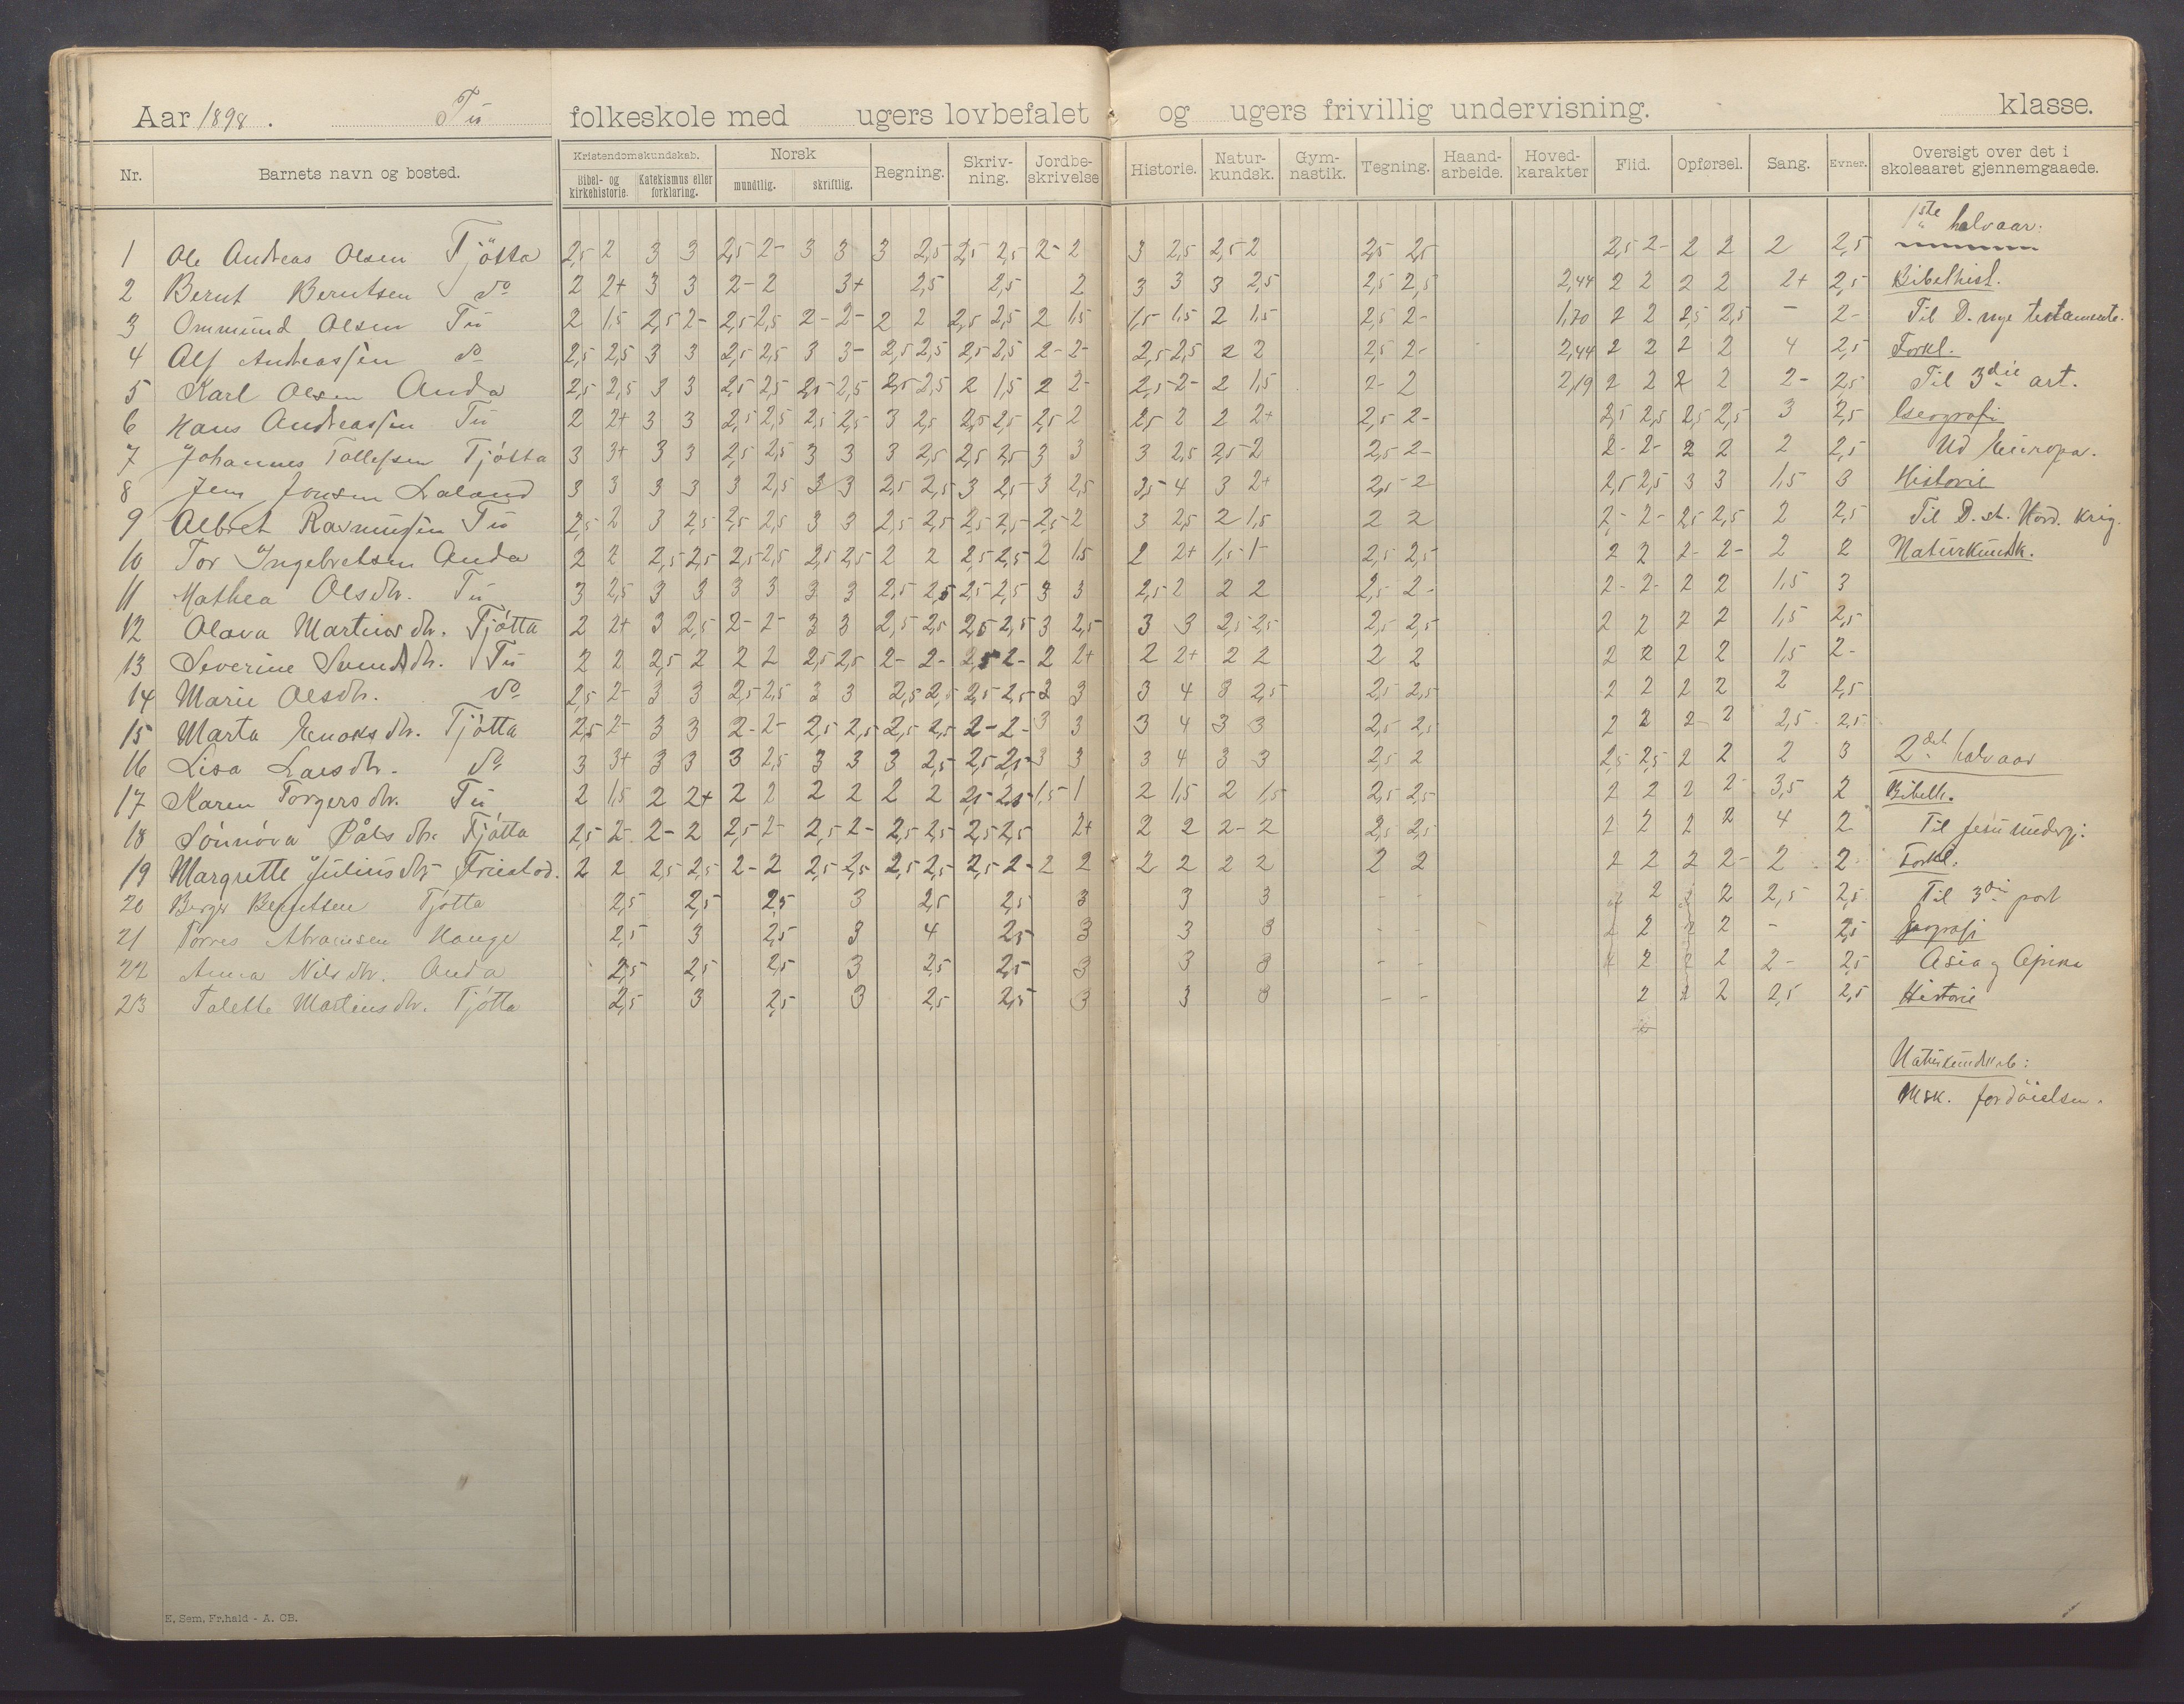 Aar 1898. Tu folkeskole med ugers lovbefalet og ugers frivillig undervisning. klasse.
Nr. Barnets navn og bosted. Kristendomskundskab. Bibel- og kirkehistorie. Katekismus eller forklaring. Norsk mundtlig. skriftlig. Regning. Skriv-ning. Jordbe-skrivelse Historie. Natur-kundsk. Gym-nastik. Tegning. Haand-arbeide. Hoved-karakter Flid. Opførsel. Sang. Evner. Oversigt over det i skoleaaret gjennemgaaede.
1ste halvaar:
1 Ole Andreas Olsen Tjøtta 2,5 2 3 3 2,5 2- 3 3 3 2,5 2,5 2,5 2- 2 3 2,5 2,5 2 2,5 2,5 2,5 2- 2 2 2 2,5
2 Bernt Berntsen do 2 2+ 3 3 2- 2 3+ 2,5 2,5 2 3 3 3 2,5 2,5 2,5 2,44 2 2 2 2 2+ 2,5 Bibelhist.
3 Ommund Olsen Tu 2 1,5 2,5 2- 2,5 2,5 2- 2- 2 2 2,5 2,5 2 1,5 1,5 1,5 2 1,5 2,5 2- 1,70 2 2 2,5 2,5 - 2- Til D. nye testamente.
4 Alf Andreassen do 2,5 2,5 3 3 2,5 2,5 3 3- 2,5 2,5 2,5 2,5 2- 2- 2,5 2,5 2 2 2,5 2- 2,44 2 2 2 2 4 2,5 Forkl.
5 Karl Olsen Anda 2,5 2,5 3 3 2,5 2,5 2,5 2,5 2,5 2,5 2 1,5 2 2- 2,5 2- 2 1,5 2- 2 2,19 2 2 2 2 2- 2,5 Til 3die art.
6 Hans Andreassen Tu 2 2+ 3 3 2,5 2,5 2,5 2,5 3 2,5 2,5 2,5 2,5 2 2,5 2 2 2+ 2,5 2- 2,5 2,5 2,5 2,5 3 2,5 Geografi
7 Johannes Tollefsen Tjøtta 3 3+ 3 3 2,5 2,5 3 3 3 2,5 2,5 2,5 3 3 3 2,5 2,5 2 2,5 2- 2- 2- 2 2 2 2,5 Ud Europa.
8 Jens Jonsen Laland 3 3 3 3 3 2,5 3 3 2,5 2,5 3 2,5 3 2,5 3,5 4 3 2+ 2,5 2 2,5 2,5 3 3 1,5 3 Historie
9 Albret Rasmussen Tu 2,5 2 3 2,5 2,5 2,5 3 3 2,5 2,5 2,5 2,5 2,5 2 3 2,5 2 1,5 2 2 2- 2- 2,5 2,5 2 2,5 Til D. st. Nord. Krig.
10 Tor Ingebretsen Anda 2 2 2,5 2,5 2,5 2,5 2,5 2,5 2 2 2,5 2,5 2 1,5 2 2+ 1,5 1- 2,5 2,5 2 2 2- 2- 2 2 Naturkundsk.
11 Mathea Olsdtr. Tu 3 2,5 3 3 3 3 3 3 2,5 2,5 2,5 2,5 3 3 2,5 2 2 2 2,5 2- 2- 2- 2 2 1,5 3
12 Olava Martinsdtr. Tjøtta 2 2+ 3 2,5 2- 2- 3 3 2,5 2,5 2,5 2,5 3 2,5 3 3 2,5 2,5 2,5 2,5 2 2 2 2 1,5 2,5
13 Severine Svendsdtr. Tu 2 2 2,5 2 2 2 2,5 2,5 2- 2- 2,5 2- 2 2+ 2 2+ 2 2 2 2 2 2 2 2 1,5 2-
14 Marie Olsdtr. do 2,5 2- 3 3 2,5 2,5 3 3 2,5 2,5 2,5 2,5 3 3 3 4 3 2,5 2,5 2,5 2 2 2 2 2 2,5
15 Marta Enoksdtr. Tjøtta 2,5 2- 3 3 2- 2- 2,5 2,5 2,5 2,5 2- 2- 3 3 3 4 3 3 2,5 2,5 2 2 2- 2 2,5 2,5
16 Lisa Larsdtr. do 3 3+ 3 3 3 2,5 3 3 3 2,5 2,5 2,5 3 3 3 4 3 3 2,5 2 2,5 2,5 2 2 2 3 2det halvaar
17 Karen Torgersdtr. Tu 2 1,5 2 2+ 2 2 2 2 2 2 2,5 2,5 1,5 1 2 1,5 2 1,5 2,5 2,5 2 2 2 2- 3,5 2 Bibelh.
18 Sønnøva Pålsdtr. Tjøtta 2,5 2- 2- 2 2,5 2- 2,5 2- 2,5 2,5 2,5 2,5 2+ 2 2 2- 2 2,5 2,5 2 2 2 2 4 2 Til Jesu undergj.
19 Margrette Juliusdtr Friestad. 2 2 2,5 2,5 2- 2 2,5 2,5 2,5 2,5 2,5 2- 2 2 2 2 2 2 2 2 2 2 2 2- 2 2- Forkl.
20 Berge Berntsen Tjøtta 2,5 2,5 2,5 3 2,5 2,5 3 3 3 - - 2 2 2 2,5 2,5 Til 3die part
21 Torres Abramsen Hauge 2,5 3 2,5 3 4 2,5 3 3 3 - - 2 2 2 - 2,5 Geografi
22 Anna Nilsdtr. Anda 2,5 2,5 2,5 3 2,5 2,5 3 3 3 - - 2 2 2 2- 2,5 Asia og Afrika
23 Talette Martinsdtr. Tjøtta 2,5 3 2,5 3 2,5 2,5 3 3 3 - - 2 2 2 2,5 2,5 Historie
Naturkundskab:
Msk. fordøielsen.
E. Sem, Fr.hald - A. CB.